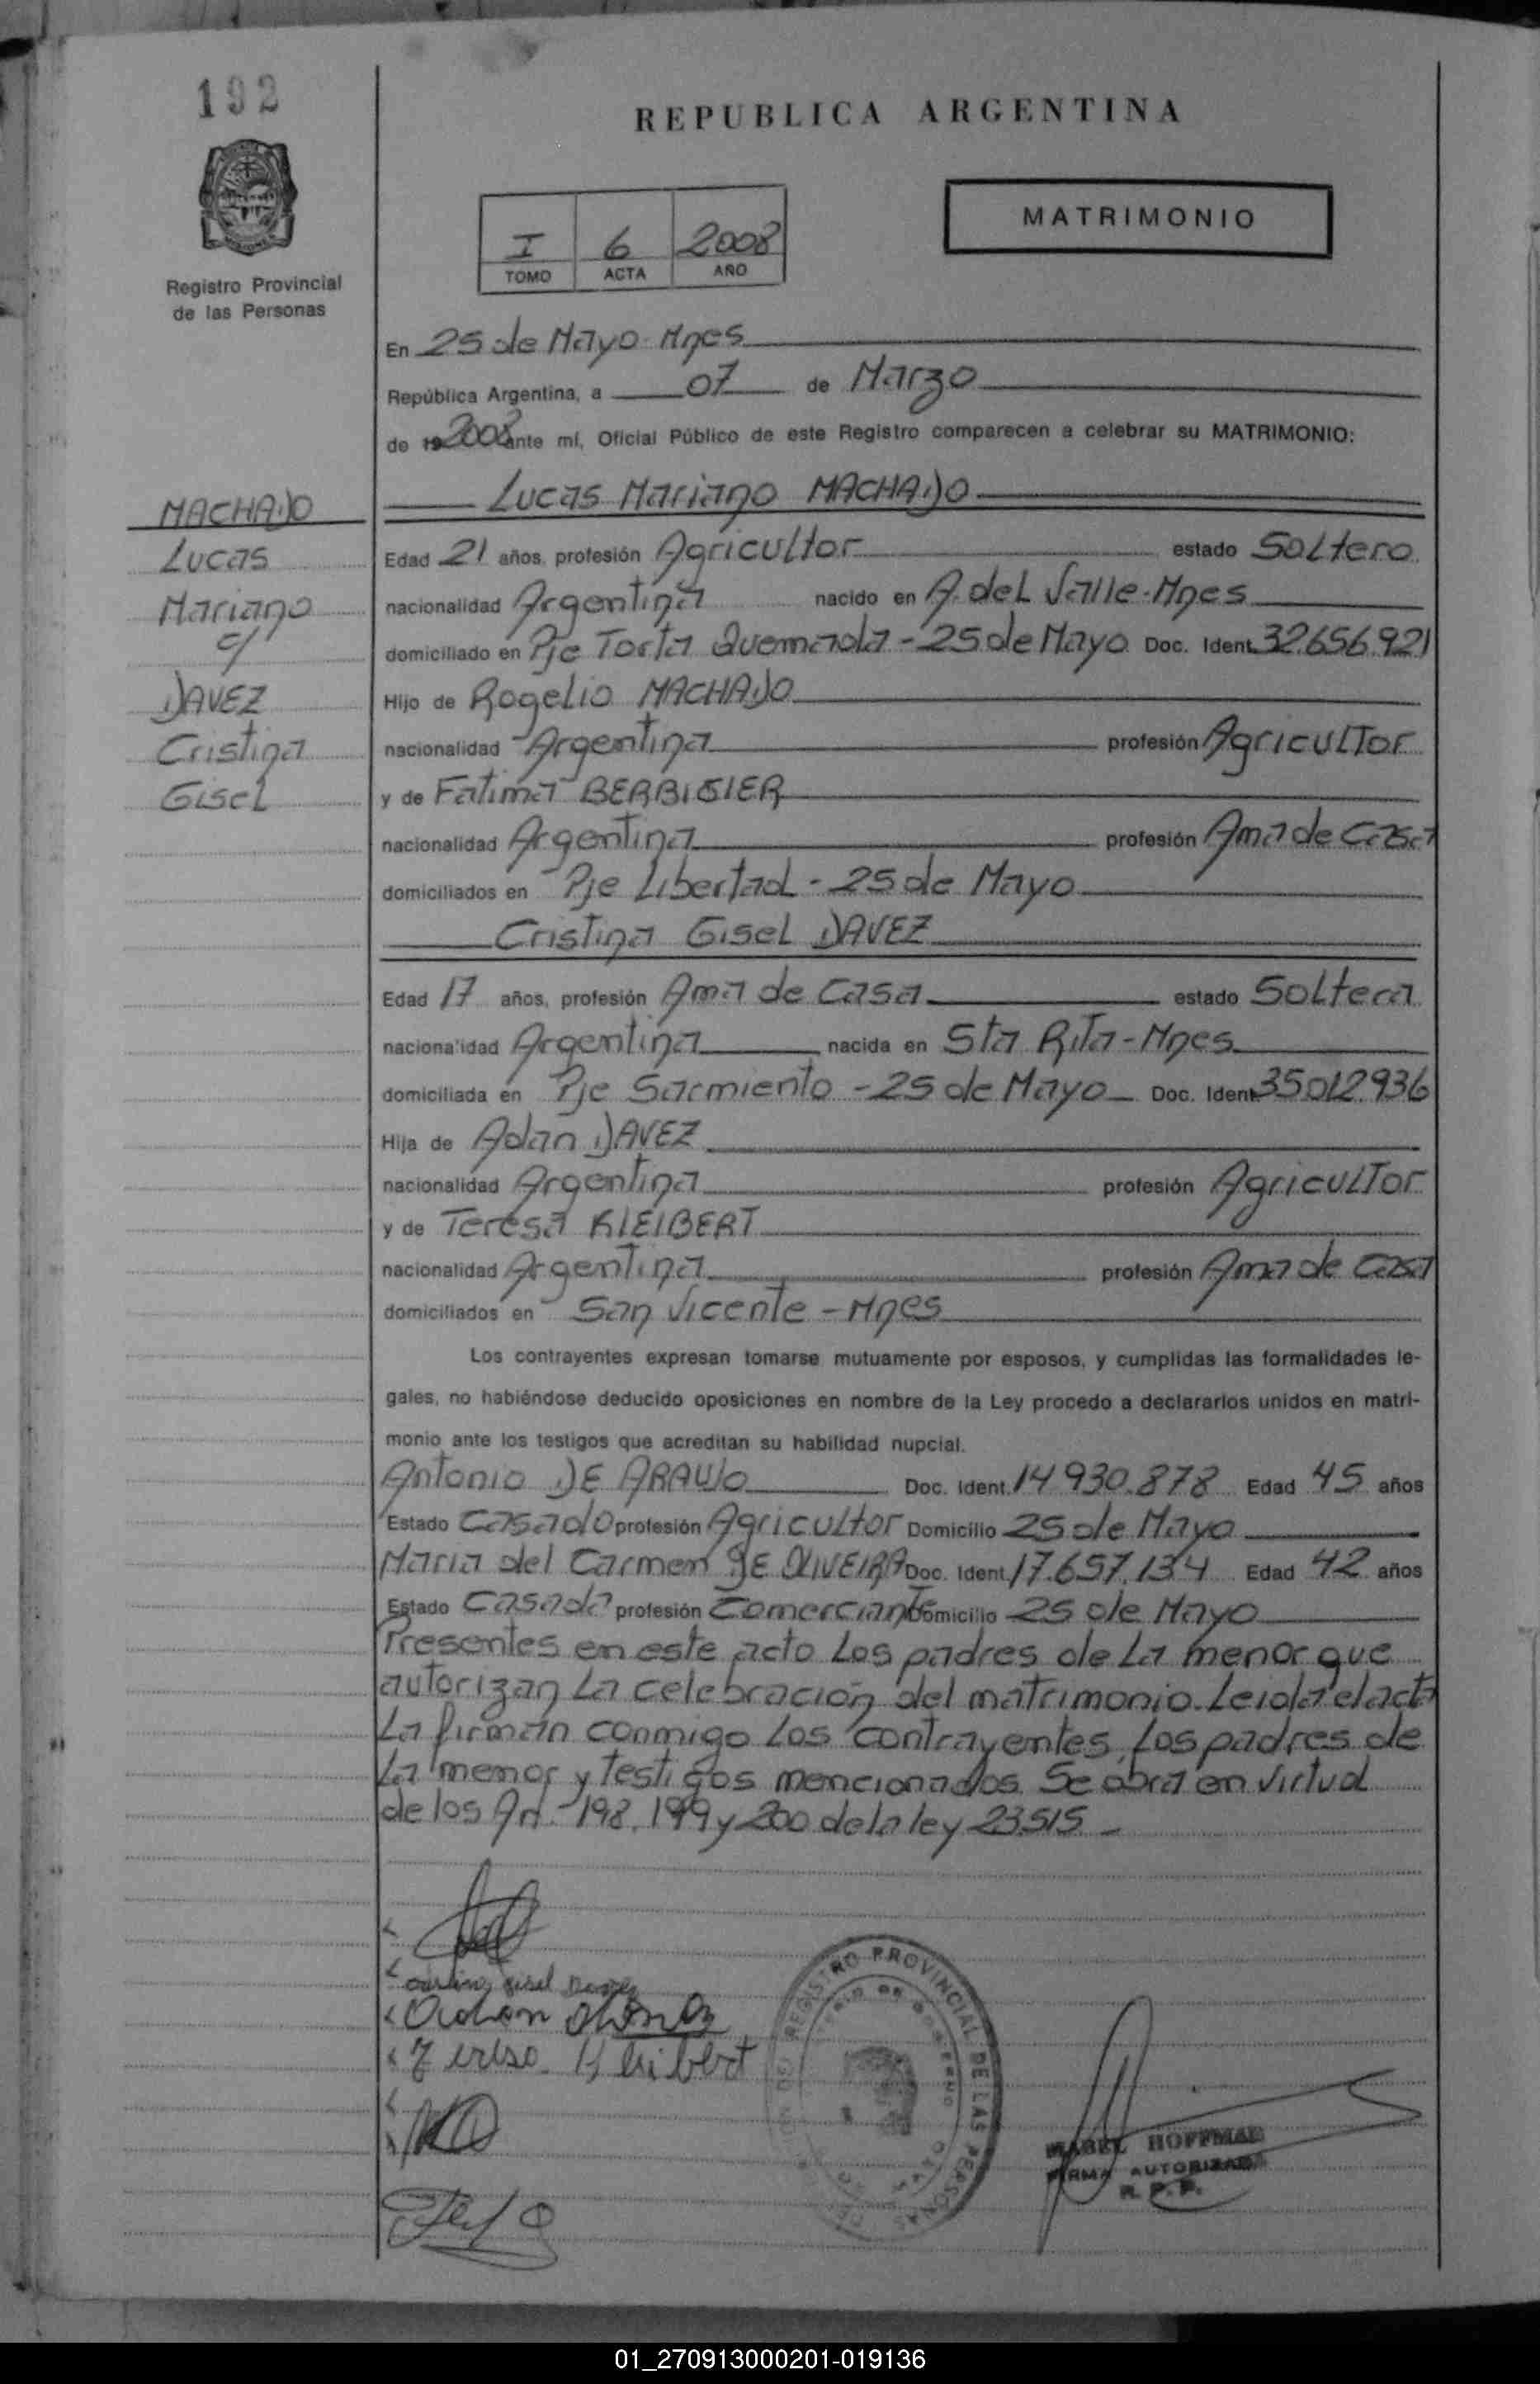 192
REPUBLICA ARGENTINA
MATRIMONIO
I 6 2008
TOMO ACTA AÑO
Registro Provincial
de las Personas
En 25 de Mayo-Mnes
República Argentina, a 07 de Marzo
de 19 2008 ante mí, Oficial Público de este Registro comparecen a celebrar su MATRIMONIO:
Lucas Mariano MACHADO
MACHADO
Lucas
Mariano
c/
DAVEZ
Cristina
Gisel
Edad 21 años, profesión Agricultor estado Soltero
nacionalidad Argentina nacido en A. del Valle-Mnes
domiciliado en Pje Torta Quemada - 25 de Mayo Doc. Ident. 32.656.921
Hijo de Rogelio MACHADO
nacionalidad Argentina profesión Agricultor
y de Fatima BERBIGIER
nacionalidad Argentina profesión Ama de Casa
domiciliados en Pje Libertad - 25 de Mayo
Cristina Gisel DAVEZ
Edad 17 años, profesión Ama de Casa estado Soltera
nacionalidad Argentina nacida en Sta Rita-Mnes
domiciliada en Pje Sarmiento - 25 de Mayo Doc. Ident. 35.012.936
Hija de Adan DAVEZ
nacionalidad Argentina profesión Agricultor
y de Teresa KLEIBERT
nacionalidad Argentina profesión Ama de Casa
domiciliados en San Vicente - Mnes
Los contrayentes expresan tomarse mutuamente por esposos, y cumplidas las formalidades le-
gales, no habiéndose deducido oposiciones en nombre de la Ley procedo a declararlos unidos en matri-
monio ante los testigos que acreditan su habilidad nupcial.
Antonio DE ARAUJO Doc. Ident. 14.930.878 Edad 45 años
Estado Casado profesión Agricultor Domicilio 25 de Mayo
Maria del Carmen DE OLIVEIRA Doc. Ident. 17.657.134 Edad 42 años
Estado Casada profesión Comerciante Domicilio 25 de Mayo
Presentes en este acto Los padres de La menor que
autorizan La celebración del matrimonio. Leida el acta
La firman conmigo Los contrayentes, Los padres de
La menor y testigos mencionados. Se obra en virtud
de los Art. 198, 199 y 200 de la ley 23.515 -
Gisel
Teresa Kleibert
REGISTRO PROVINCIAL DE LAS PERSONAS
ISABEL HOFFMAN
FIRMA AUTORIZADA
R. P. P.
01_270913000201-019136